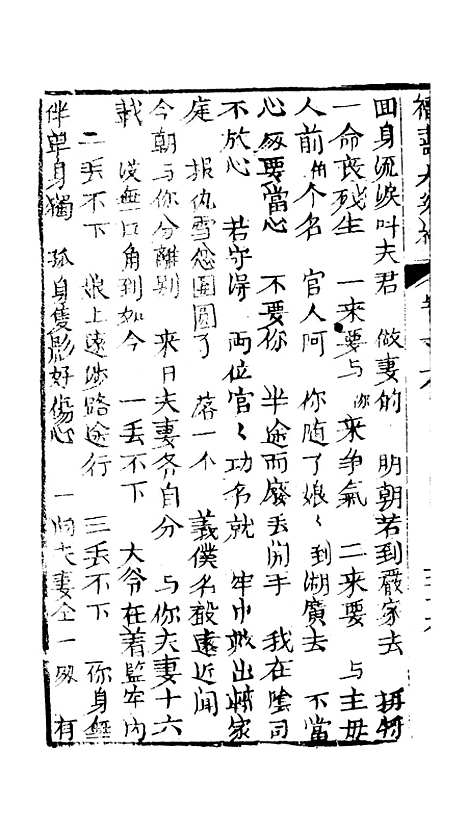 回身流淚叫夫君 做妻的 明朝若到嚴家去 拐
一命喪殘生 一来要与你来争氣 二来要 与主毋
人前 个名 官人阿 你随了娘〻到湖廣去 不當
心 要當心 不要你 半途而廢丢開手 我在陰司
不放心 若守得 両位官〻功名就 牢中救出 家
庭 报仇雪怨團圓了 落一个 義僕名 遠近闻
今朝与你分離别 来日夫妻各自分 与你夫妻十六
載 没無口角到如今 一丢不下 大爷在着监牢内
二丢不下 娘上遠 路途行 三丢不下 你身無
伴单身獨 孤身隻影好傷心 一 夫妻仝一 有